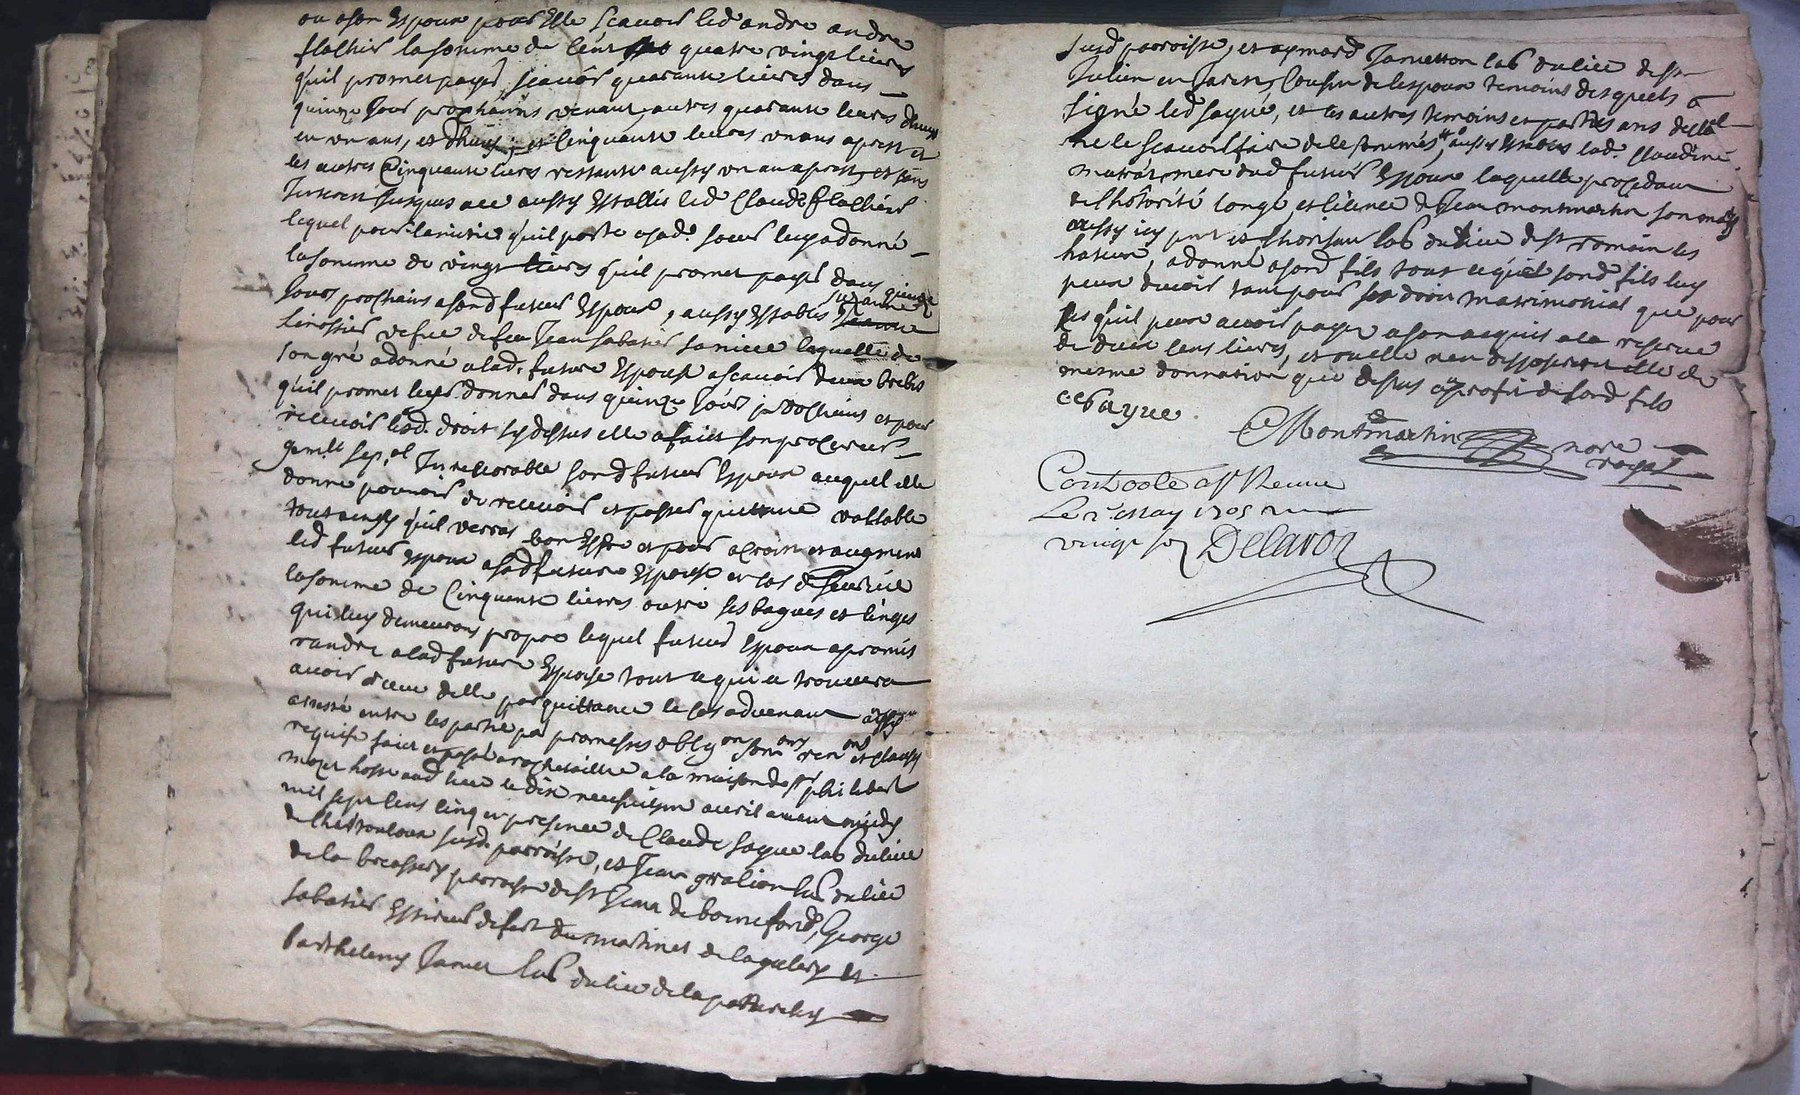 ou a son Espoux pour Elle scavoir led andré andré
flachier la somme de Cent quatre vingt livres
quil promet payer, scavoir quarante livres dans
quinze Jours prochains venant, autres quarante livres d'huy
en un ans, et d'huy; et Cinquante livres un ans apres et
les autres Cinquante livres restante aussy un an apres, et sans
Interest jusques a ce aussy Estably led Claude flachier
lequel pour lamitié qu'il porte a sad.e soeur luy a donné
la somme de vingt livres qu'il promet payer dans quinze
Jours prochains a sond futur Espoux, aussy Establie Suzanne
vefve de feu Jean Sabatier sa niece laquelle de
son gré a donné a lad. future Espouse a scavoir deux brebis
qu'il promet luy donner dans quinze Jours prochains et pour
recevoir lesd. droit sy dessus elle a faict son procureur
gen.al sep.al Irrevocable sond futur Espoux auquel elle
donne pouvoir de recevoir et passer quittance vallable
tout ainsy qu'il verra bon Estre et pour acroist et augment
led futur Espoux a sad future Espouse en cas de survie
la somme de Cinquante livres outre ses bagues et linges
qui luy demeurons propre lequel futur Espoux a promis
randre a lad future Espouse tout ce qui ce trouvera
avoir receu delle par quittance le cas advenant ainsy
aresté entre les partie par promesses oblig.ons ren.ons et clauses
requise faict et passé a rochetaillée a la maison de s.r philibert
hoste aud lieu le dix neufvieme avril avant midy
mil sept cens cinq en presence de Claude sayve lab. du lieu
de susd. parroisse, et Jean gralion lab du lieu
de la parroisse de St Jean de bonnefond, George
Sabatier du martinet de et
barthelemy Janet lab du lieu de la
susd parroisse, et aymard Janetton lab du lieu de St
Julien en Jarest, Cousin de l'espoux temoins desquels a
signé led sayve, et les autres temoins et parties ans declaré
ne le scavoir faire de ce sommés, aussy Establie lad. Claudine
mere dud futur Espoux laquelle procedant
de l'hotorité Congé, et licence de Jean montmartin son mary
aussy icy p.nt et lab du lieu de St romain les
a donné a sond fils tout ce qu'el sond fils luy
peux devoir tant pour ses droit matrimonial que pour
ce qu'il peux avoir payé a son acquit a la reserve
de deux cens livres, et ou elle n'en disposeroit elle de
mesme donnation que dessus au profit de sond fils
Montmartin
nore
royal
Controlé a St Etienne
Le 2 may 1705 reçu
vingt sols Delaroa